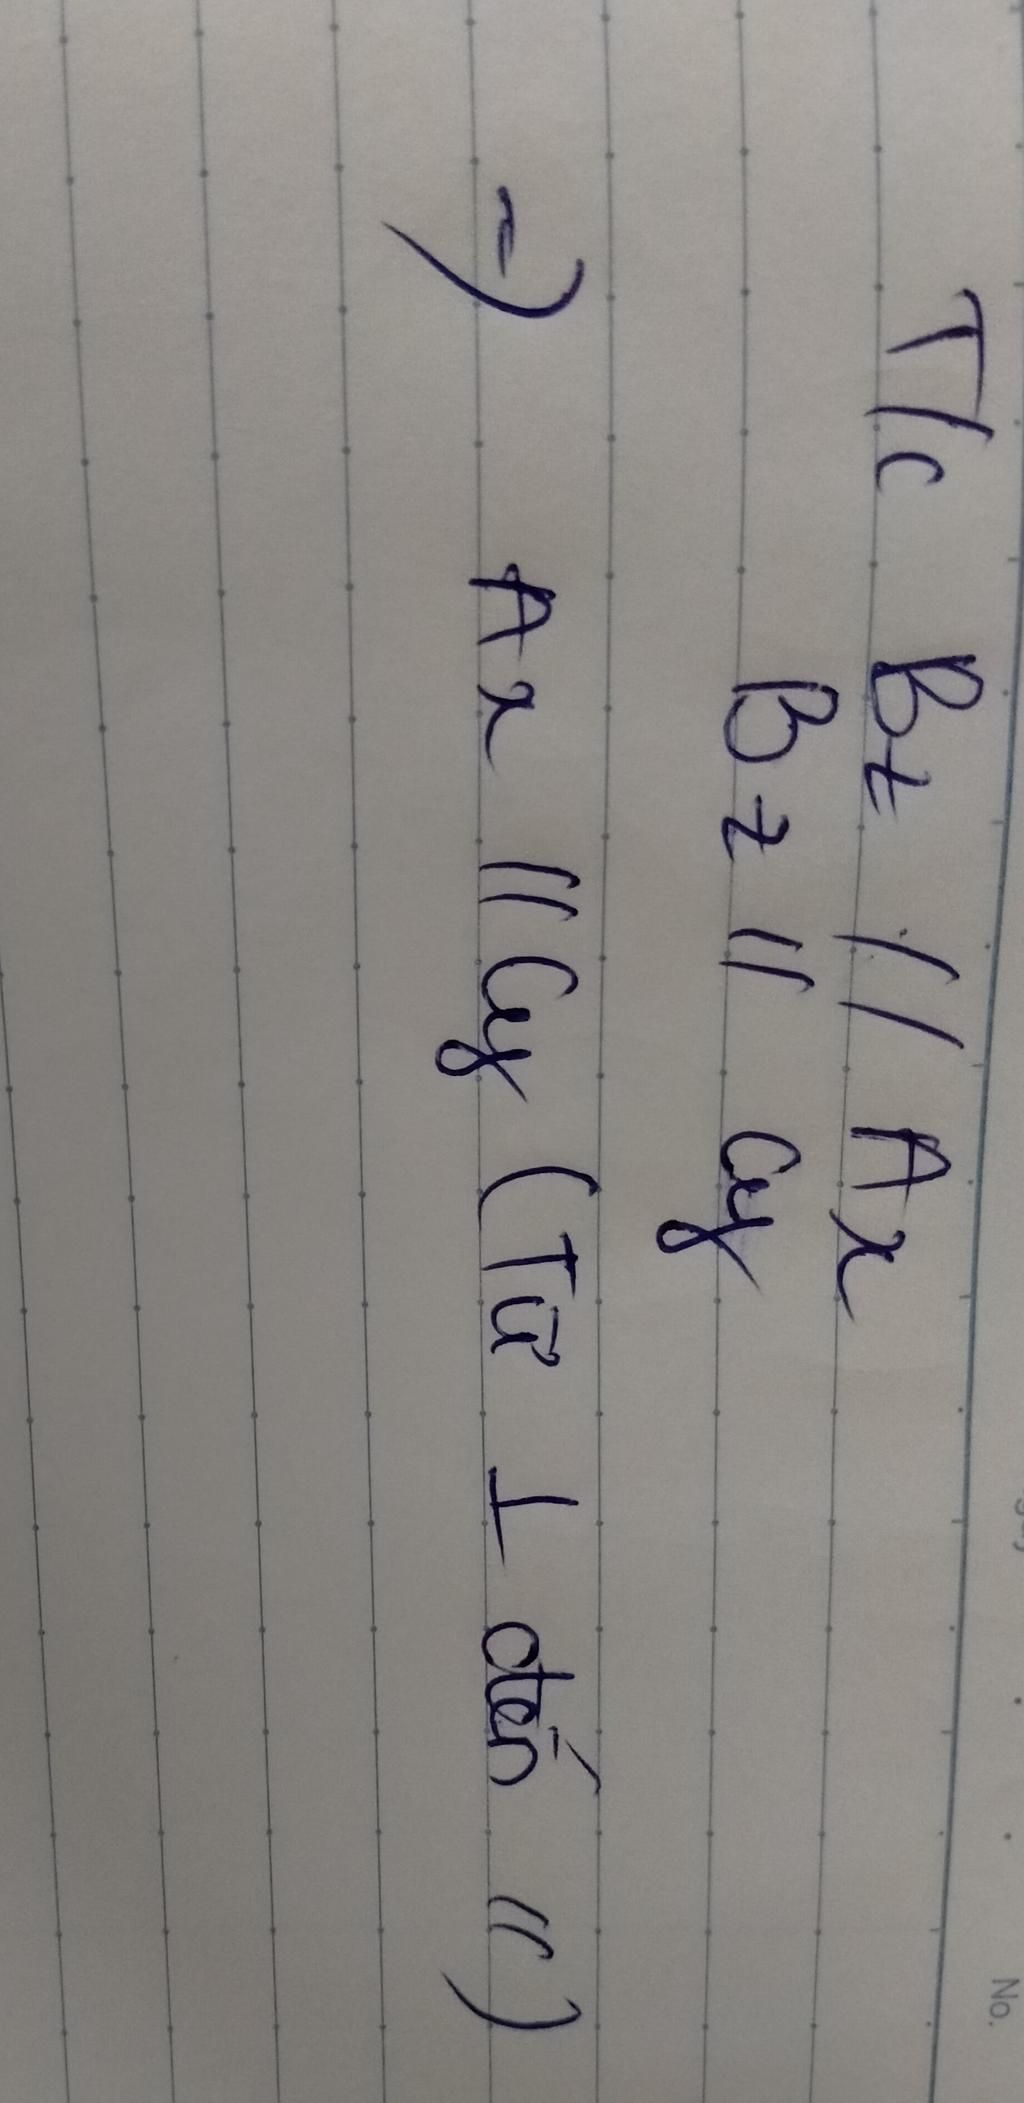 No.
T/c Bz // Ax
Bz // Cy
=) Ax // Cy (Từ ⊥ đến //)